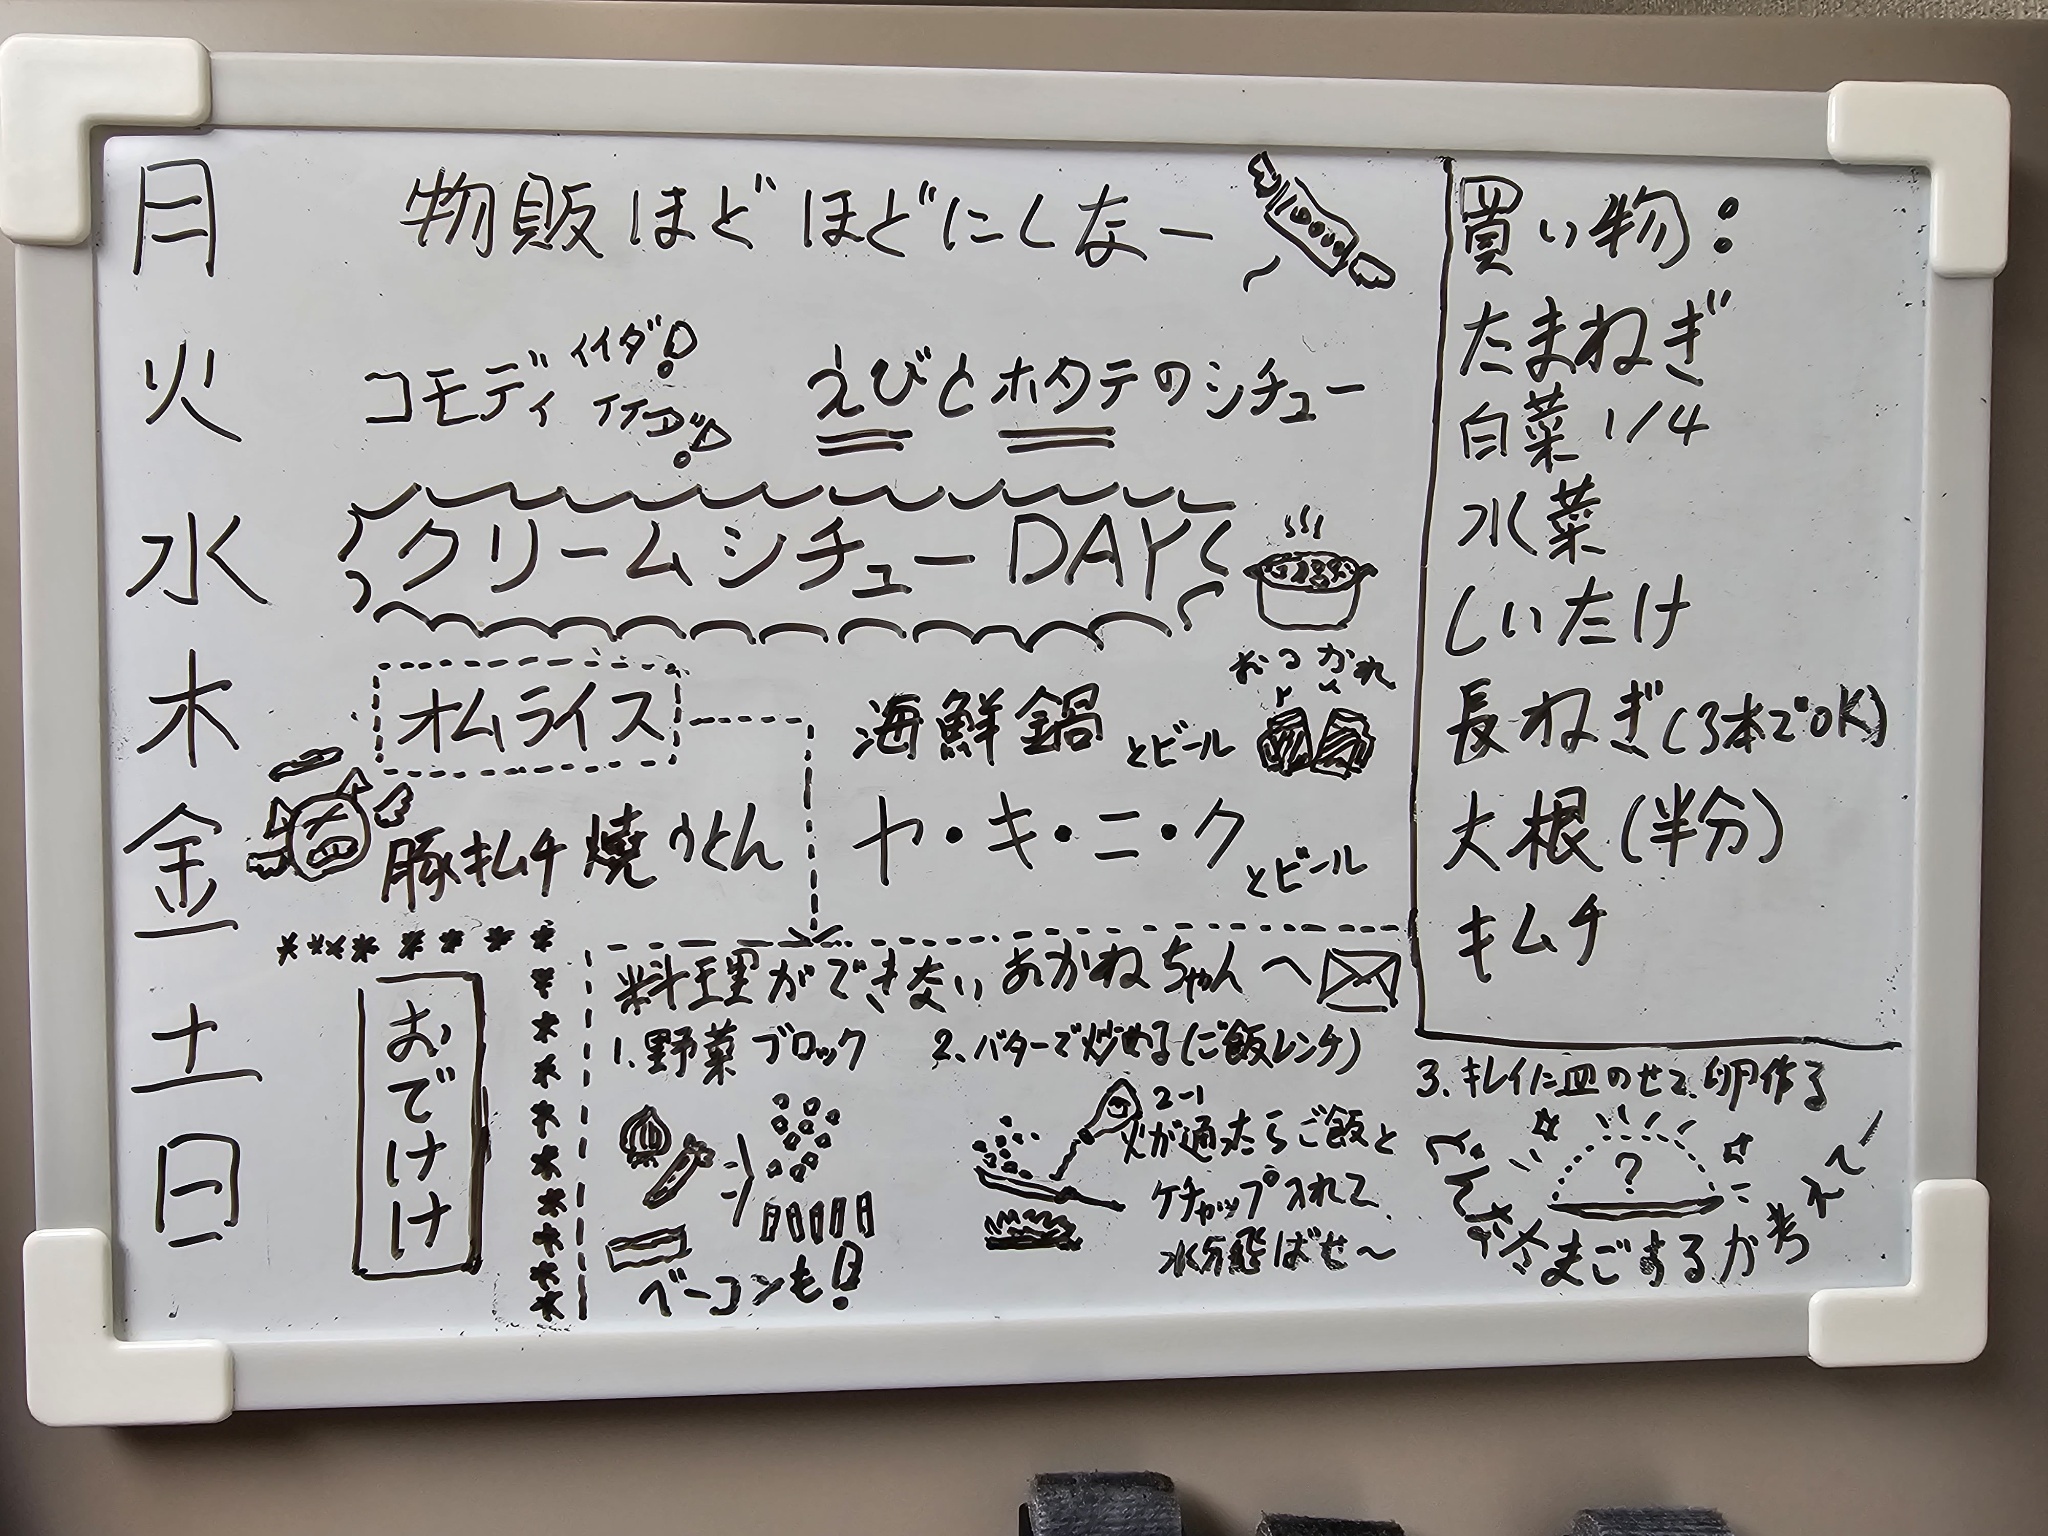 月 物販ほどほどにしなー
火 コモディイイダ! イイコダ! えびとホタテのシチュー
水 クリームシチューDAY
おつかれ
木 オムライス 海鮮鍋とビール
金 豚キムチ焼うどん ヤ・キ・ニ・クとビール
土
日
おでけけ
買い物:
たまねぎ
白菜 1/4
水菜
しいたけ
長ねぎ(3本でOK)
大根(半分)
キムチ
料理ができないあかねちゃんへ
1. 野菜ブロック
ベーコンも!
2. バターで炒める(ご飯レンチ)
2-1
火が通ったらご飯と
ケチャップ入れて
水分飛ばせ〜
3. キレイに皿のせて、卵作る
?
たまごするか考え〜